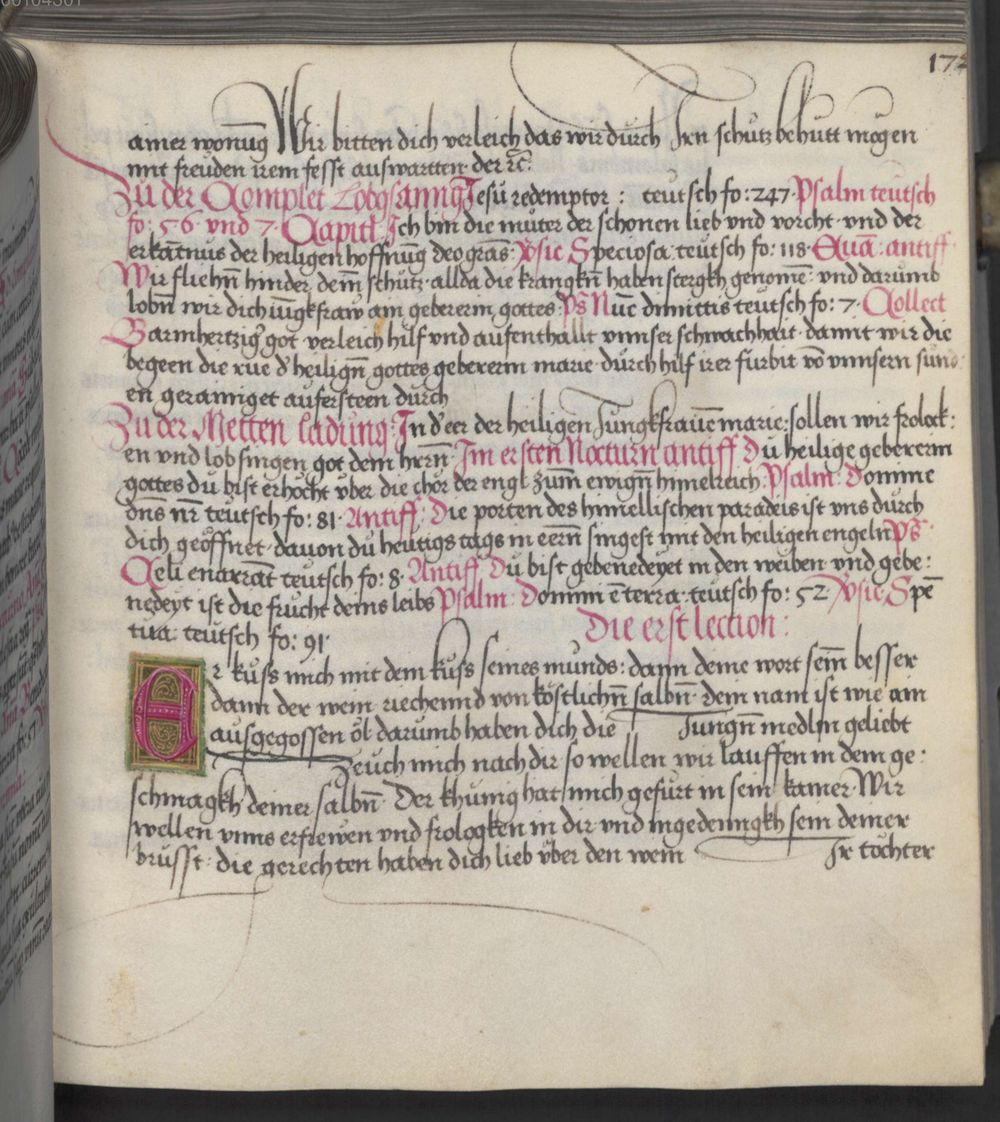 00104301
172
amer wonung Wir bitten dich verleich das wir durch Irn schutz behutt mogen
mit freuden irem fesst auswartten der rc̄:
Zu der Complet Lobgsanng Jesu redemptor : teutsch fo: 247 · Psalm teutsch
fo: 5 · 6 · vnd 7 · Capitl Ich bin die muter der schonen lieb vnd vorcht · vnd der
erkātnus der heiligen hoffnūg deo gras: Vsic Speciosa · teutsch fo: 118 · Eua: antiff ·
Wir fliehn̄ hinder dem̄ schutz · allda die krangkn̄ haben stergkh genomē · vnd darumb
lobn̄ wir dich iūgkfraw ain gebererin gottes · Ps Nūc dimittis teutsch fo: 7 · Collect
Barmhertzig' got verleich hilf vnd aufenthallt vnnser schwachhait · damit wir die
begeen die rue d' heilign̄ gottes gebererin marie · durch hilf irer furbit vō vnnsern sund:
en gerainiget aufersteen durch
Zu der Metten ladung · In d' eer der heiligen Jungkfrauē marie: sollen wir frolock:
en vnd lobsingen got dem hrrn̄ · Im ersten Nocturn antiff Du heilige gebererin
gottes du bist erhocht vber die chor der engl zum̄ ewign̄ himelreich · Psalm · Domine
dn̄s nr̄ teutsch fo: 81 · Antiff · Die porten des himellischen paradeis ist vns durch
dich geöffnet · dauon du heutigs tags in eern̄ singest mit den heiligen engeln · Ps ·
Celi enarrāt teutsch fo: 8 · Antiff · Du bist gebenedeyet in den weiben · vnd gebe:
nedeyt ist die frucht deins leibs Psalm · Domini ē terra · teutsch fo: 52 · Vsic · Spē
tua · teutsch fo: 91 ·
Die erst lection:
Er kuss mich mit dem kuss seines munds: dann deine wort sein̄ besser
dann der wein riechennd von köstlichn̄ salbn̄ · dein nam ist wie ain
ausgegossen öl darumb haben dich die Jungn̄ medlin geliebt
Zeuch mich nach dir so wellen wir lauffen in dem ge:
schmagkh deiner salbn̄ · Der khunig hat mich gefurt in sein kamer Wir
wellen vnns erfrewen vnd frologken in dir vnd ingedenngkh sein deiner
brusst · die gerechten haben dich lieb vber den wein Ir tochter